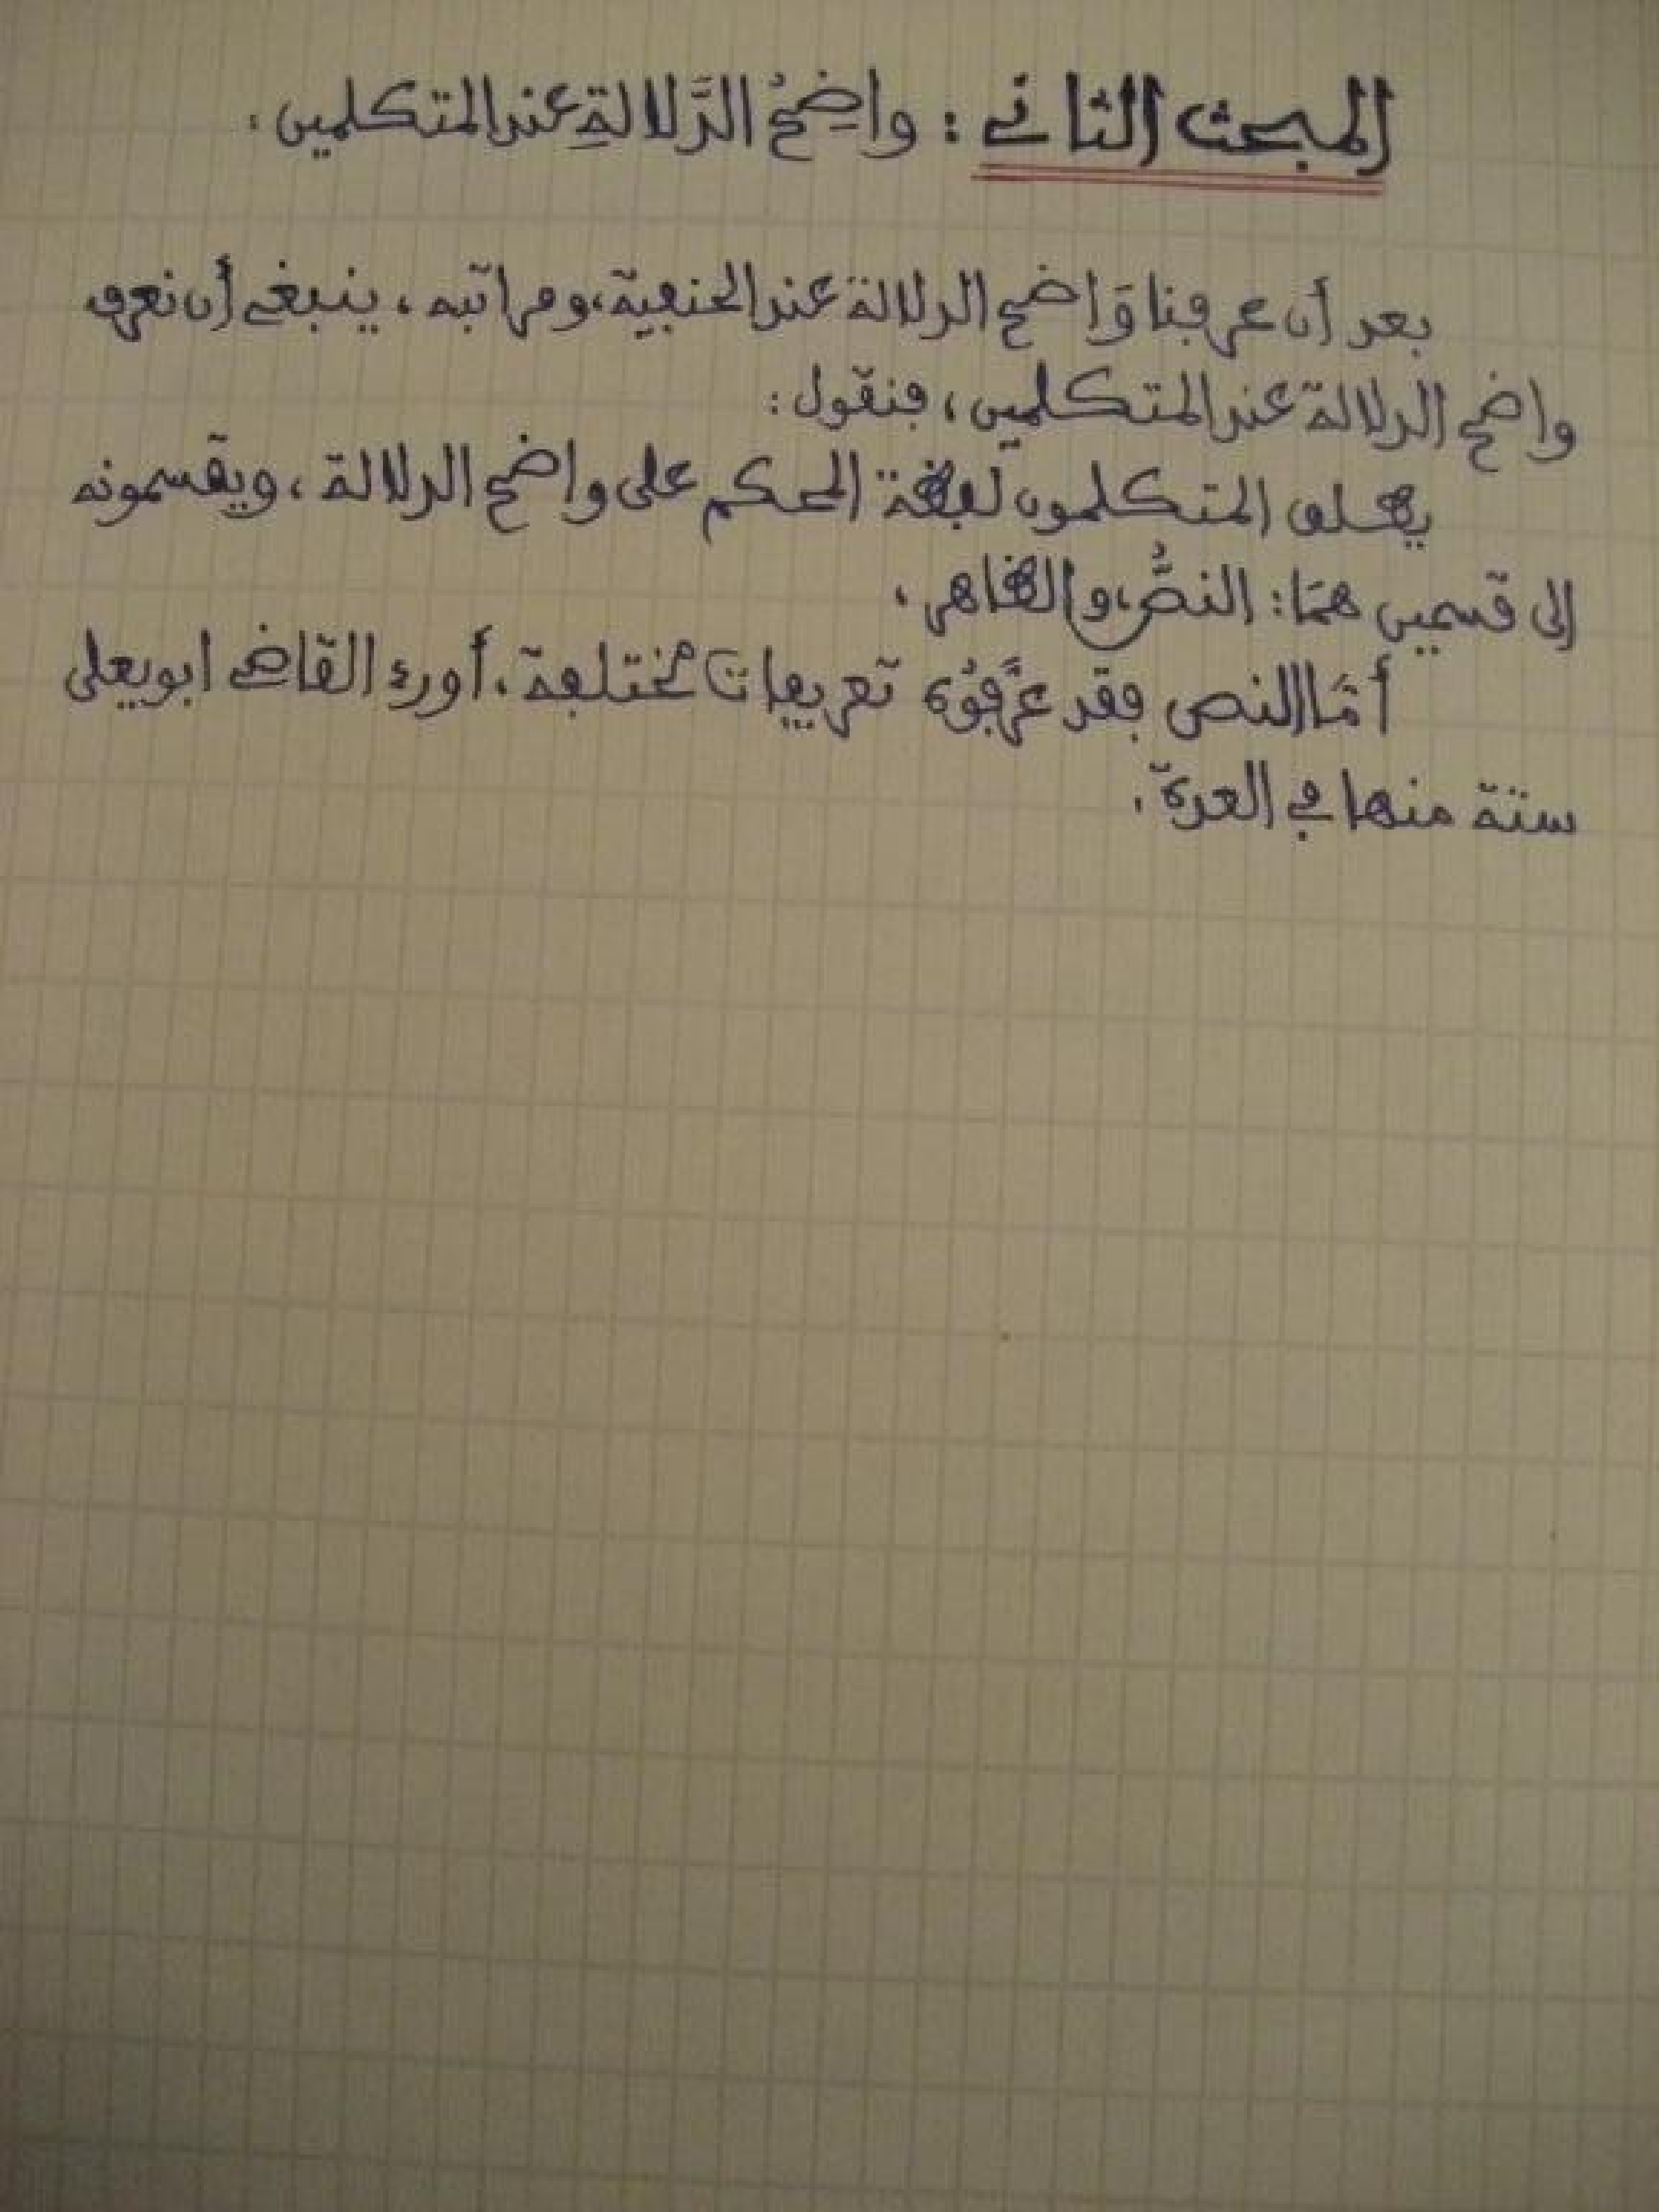 المبحث الثاني: واضِحُ الدَّلالةِ عند المتكلمين.
بعد أن عرفنا وَاضح الدلالة عند الحنفية، ومراتبه، ينبغي أن نعرف
واضح الدلالة عند المتكلمين، فنقول:
يطلق المتكلمون لفظة المحكم على واضح الدلالة، ويقسمونه
إلى قسمين همَا: النصُّ، والظاهر.
أمَّا النص فقد عرَّفوُه تعريفات مختلفة، أورد القاضي ابو يعلى
ستة منها في العدة.